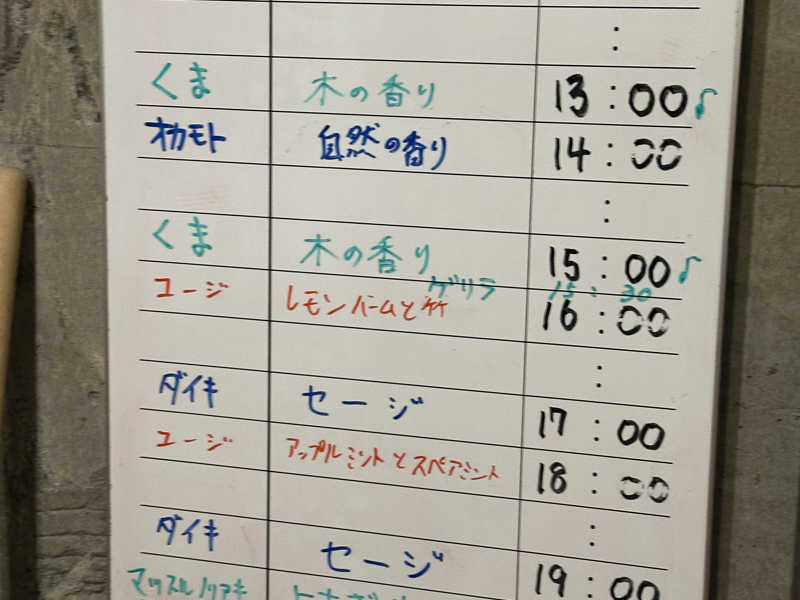 :
くま 木の香り 13:00♪
オカモト 自然の香り 14:00
:
くま 木の香り 15:00♪
ゲリラ 15:30
ユージ レモンバームと竹 16:00
:
ダイキ セージ 17:00
ユージ アップルミントとスペアミント 18:00
:
ダイキ セージ 19:00
マッスルノリアキ